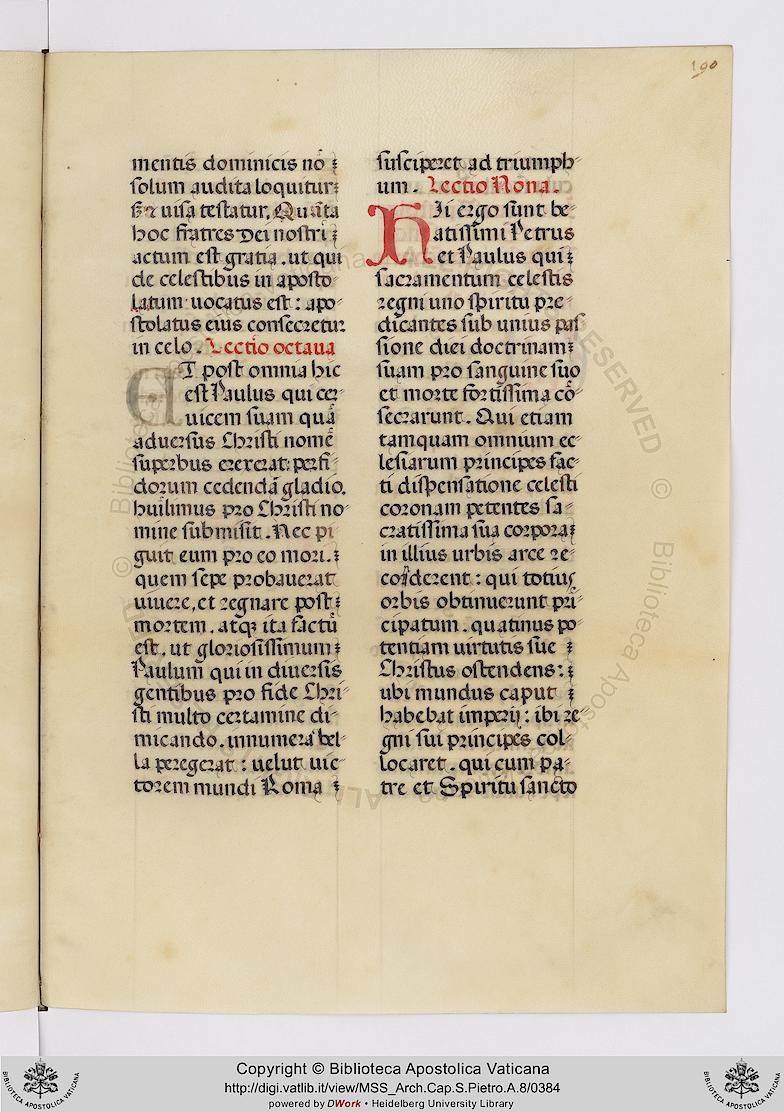 190
mentis dominicis nō
solum audita loquitur
s; & uisa testatur. Quāta
hoc fratres Dei nostri
actum est gratia. ut qui
de celestibus in aposto
latum uocatus est: apo-
stolatus eius consecretur
in celo. Lectio octaua
ET post omnia hic
est Paulus qui cer-
uicem suam quā
aduersus Christi nomē
superbus erexerat: perfi-
dorum cedendā gladio.
humlimus pro Christi no-
mine submisit. Nec pi
guit eum pro eo mori.
quem sepe probauerat
uiuere, et regnare post
mortem. atq; ita factū
est. ut gloriosissimum
Paulum qui in diuersis
gentibus pro fide Chri-
sti multo certamine di-
micando. innumera bel-
la peregerat: uelut uic-
torem mundi Roma
susciperet ad triumph-
um. Lectio Nona.
Hi ergo sunt be-
atissimi Petrus
et Paulus qui
sacramentum celestis
regni uno spiritu pre-
dicantes sub unius pas
sione diei doctrinam
suam pro sanguine suo
et morte fortissima cō-
secrarunt. Qui etiam
tamquam omnium ec-
lesiarum principes fac-
ti dispensatione celesti
coronam petentes sa-
cratissima sua corpora
in illius urbis arce re-
conderent: qui totius
orbis obtinuerunt pri-
cipatum. quatinus po-
tentiam uirtutis sue
Christus ostendens:
ubi mundus caput
habebat imperij: ibi re-
gni sui principes col-
locaret. qui cum pa-
tre et Spiritu sancto
Copyright © Biblioteca Apostolica Vaticana
http://digi.vatlib.it/view/MSS_Arch.Cap.S.Pietro.A.8/0384
powered by DWork • Heidelberg University Library
BIBLIOTECA APOSTOLICA VATICANA
BIBLIOTECA APOSTOLICA VATICANA